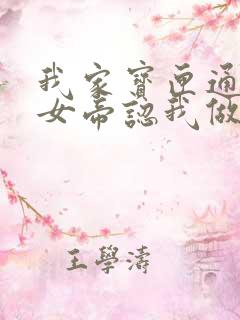 我家寶匣通
女帝認我做
王學濤